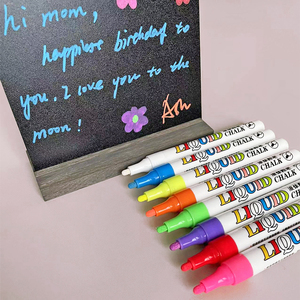 hi mom,
happiest birthday to
you. I love you to the
moon!
Ash
LIQUID CHALK
LIQUID CHALK
LIQUID CHALK
LIQUID CHALK
LIQUID
LIQUID
LIQUID
LIQUID